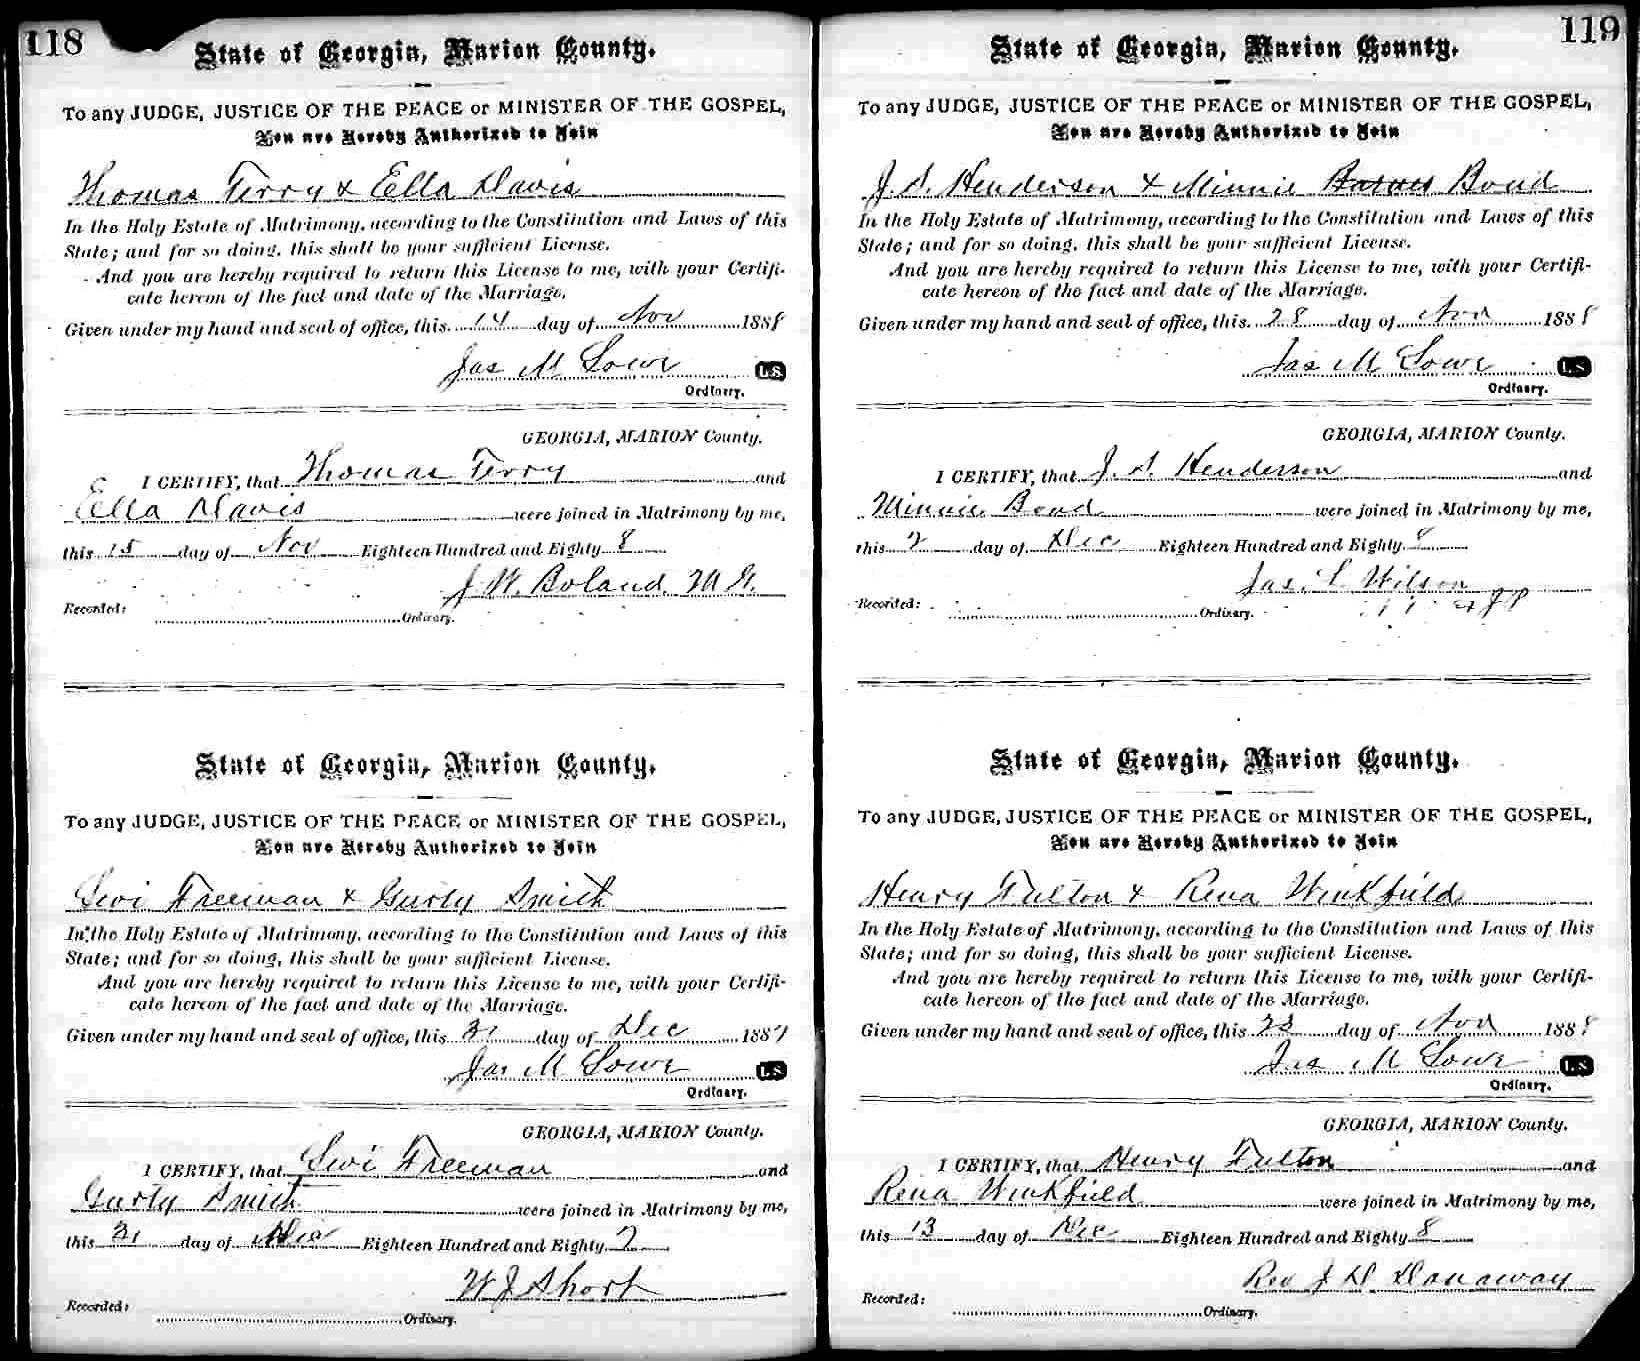 118
State of Georgia, Marion County.
To any JUDGE, JUSTICE OF THE PEACE or MINISTER OF THE GOSPEL,
You are Hereby Authorized to Join
Thomas Terry & Ella Davis
In the Holy Estate of Matrimony, according to the Constitution and Laws of this
State; and for so doing, this shall be your sufficient License.
And you are hereby required to return this License to me, with your Certifi-
cate hereon of the fact and date of the Marriage.
Given under my hand and seal of office, this 14 day of Nov 1888
Jas M Lowe L.S.
Ordinary.
GEORGIA, MARION County.
I CERTIFY, that Thomas Terry and
Ella Davis were joined in Matrimony by me,
this 15 day of Nov Eighteen Hundred and Eighty 8
J. W. Boland. M G.
Recorded: Ordinary.
State of Georgia, Marion County.
To any JUDGE, JUSTICE OF THE PEACE or MINISTER OF THE GOSPEL,
You are Hereby Authorized to Join
Levi Freeman & Gurly Smith
In the Holy Estate of Matrimony, according to the Constitution and Laws of this
State; and for so doing, this shall be your sufficient License.
And you are hereby required to return this License to me, with your Certifi-
cate hereon of the fact and date of the Marriage.
Given under my hand and seal of office, this 31 day of Dec 1887
Jas M Lowe L.S.
Ordinary.
GEORGIA, MARION County.
I CERTIFY, that Levi Freeman and
Gurly Smith were joined in Matrimony by me,
this 31 day of Dec Eighteen Hundred and Eighty 7
W J Short
Recorded: Ordinary.
119
State of Georgia, Marion County.
To any JUDGE, JUSTICE OF THE PEACE or MINISTER OF THE GOSPEL,
You are Hereby Authorized to Join
J. S. Henderson & Minnie Bond
In the Holy Estate of Matrimony, according to the Constitution and Laws of this
State; and for so doing, this shall be your sufficient License.
And you are hereby required to return this License to me, with your Certifi-
cate hereon of the fact and date of the Marriage.
Given under my hand and seal of office, this 28 day of Nov 1888
Jas M Lowe L.S.
Ordinary.
GEORGIA, MARION County.
I CERTIFY, that J. S. Henderson and
Minnie Bond were joined in Matrimony by me,
this 2 day of Dec Eighteen Hundred and Eighty 8
Jas. L. Wilson
Recorded: Ordinary. J P
State of Georgia, Marion County.
To any JUDGE, JUSTICE OF THE PEACE or MINISTER OF THE GOSPEL,
You are Hereby Authorized to Join
Henry Fulton & Rena Winkfield
In the Holy Estate of Matrimony, according to the Constitution and Laws of this
State; and for so doing, this shall be your sufficient License.
And you are hereby required to return this License to me, with your Certifi-
cate hereon of the fact and date of the Marriage.
Given under my hand and seal of office, this 23 day of Nov 1888
Jas M Lowe L.S.
Ordinary.
GEORGIA, MARION County.
I CERTIFY, that Henry Fulton and
Rena Winkfield were joined in Matrimony by me,
this 13 day of Dec Eighteen Hundred and Eighty 8
Rev J D Danaway
Recorded: Ordinary.